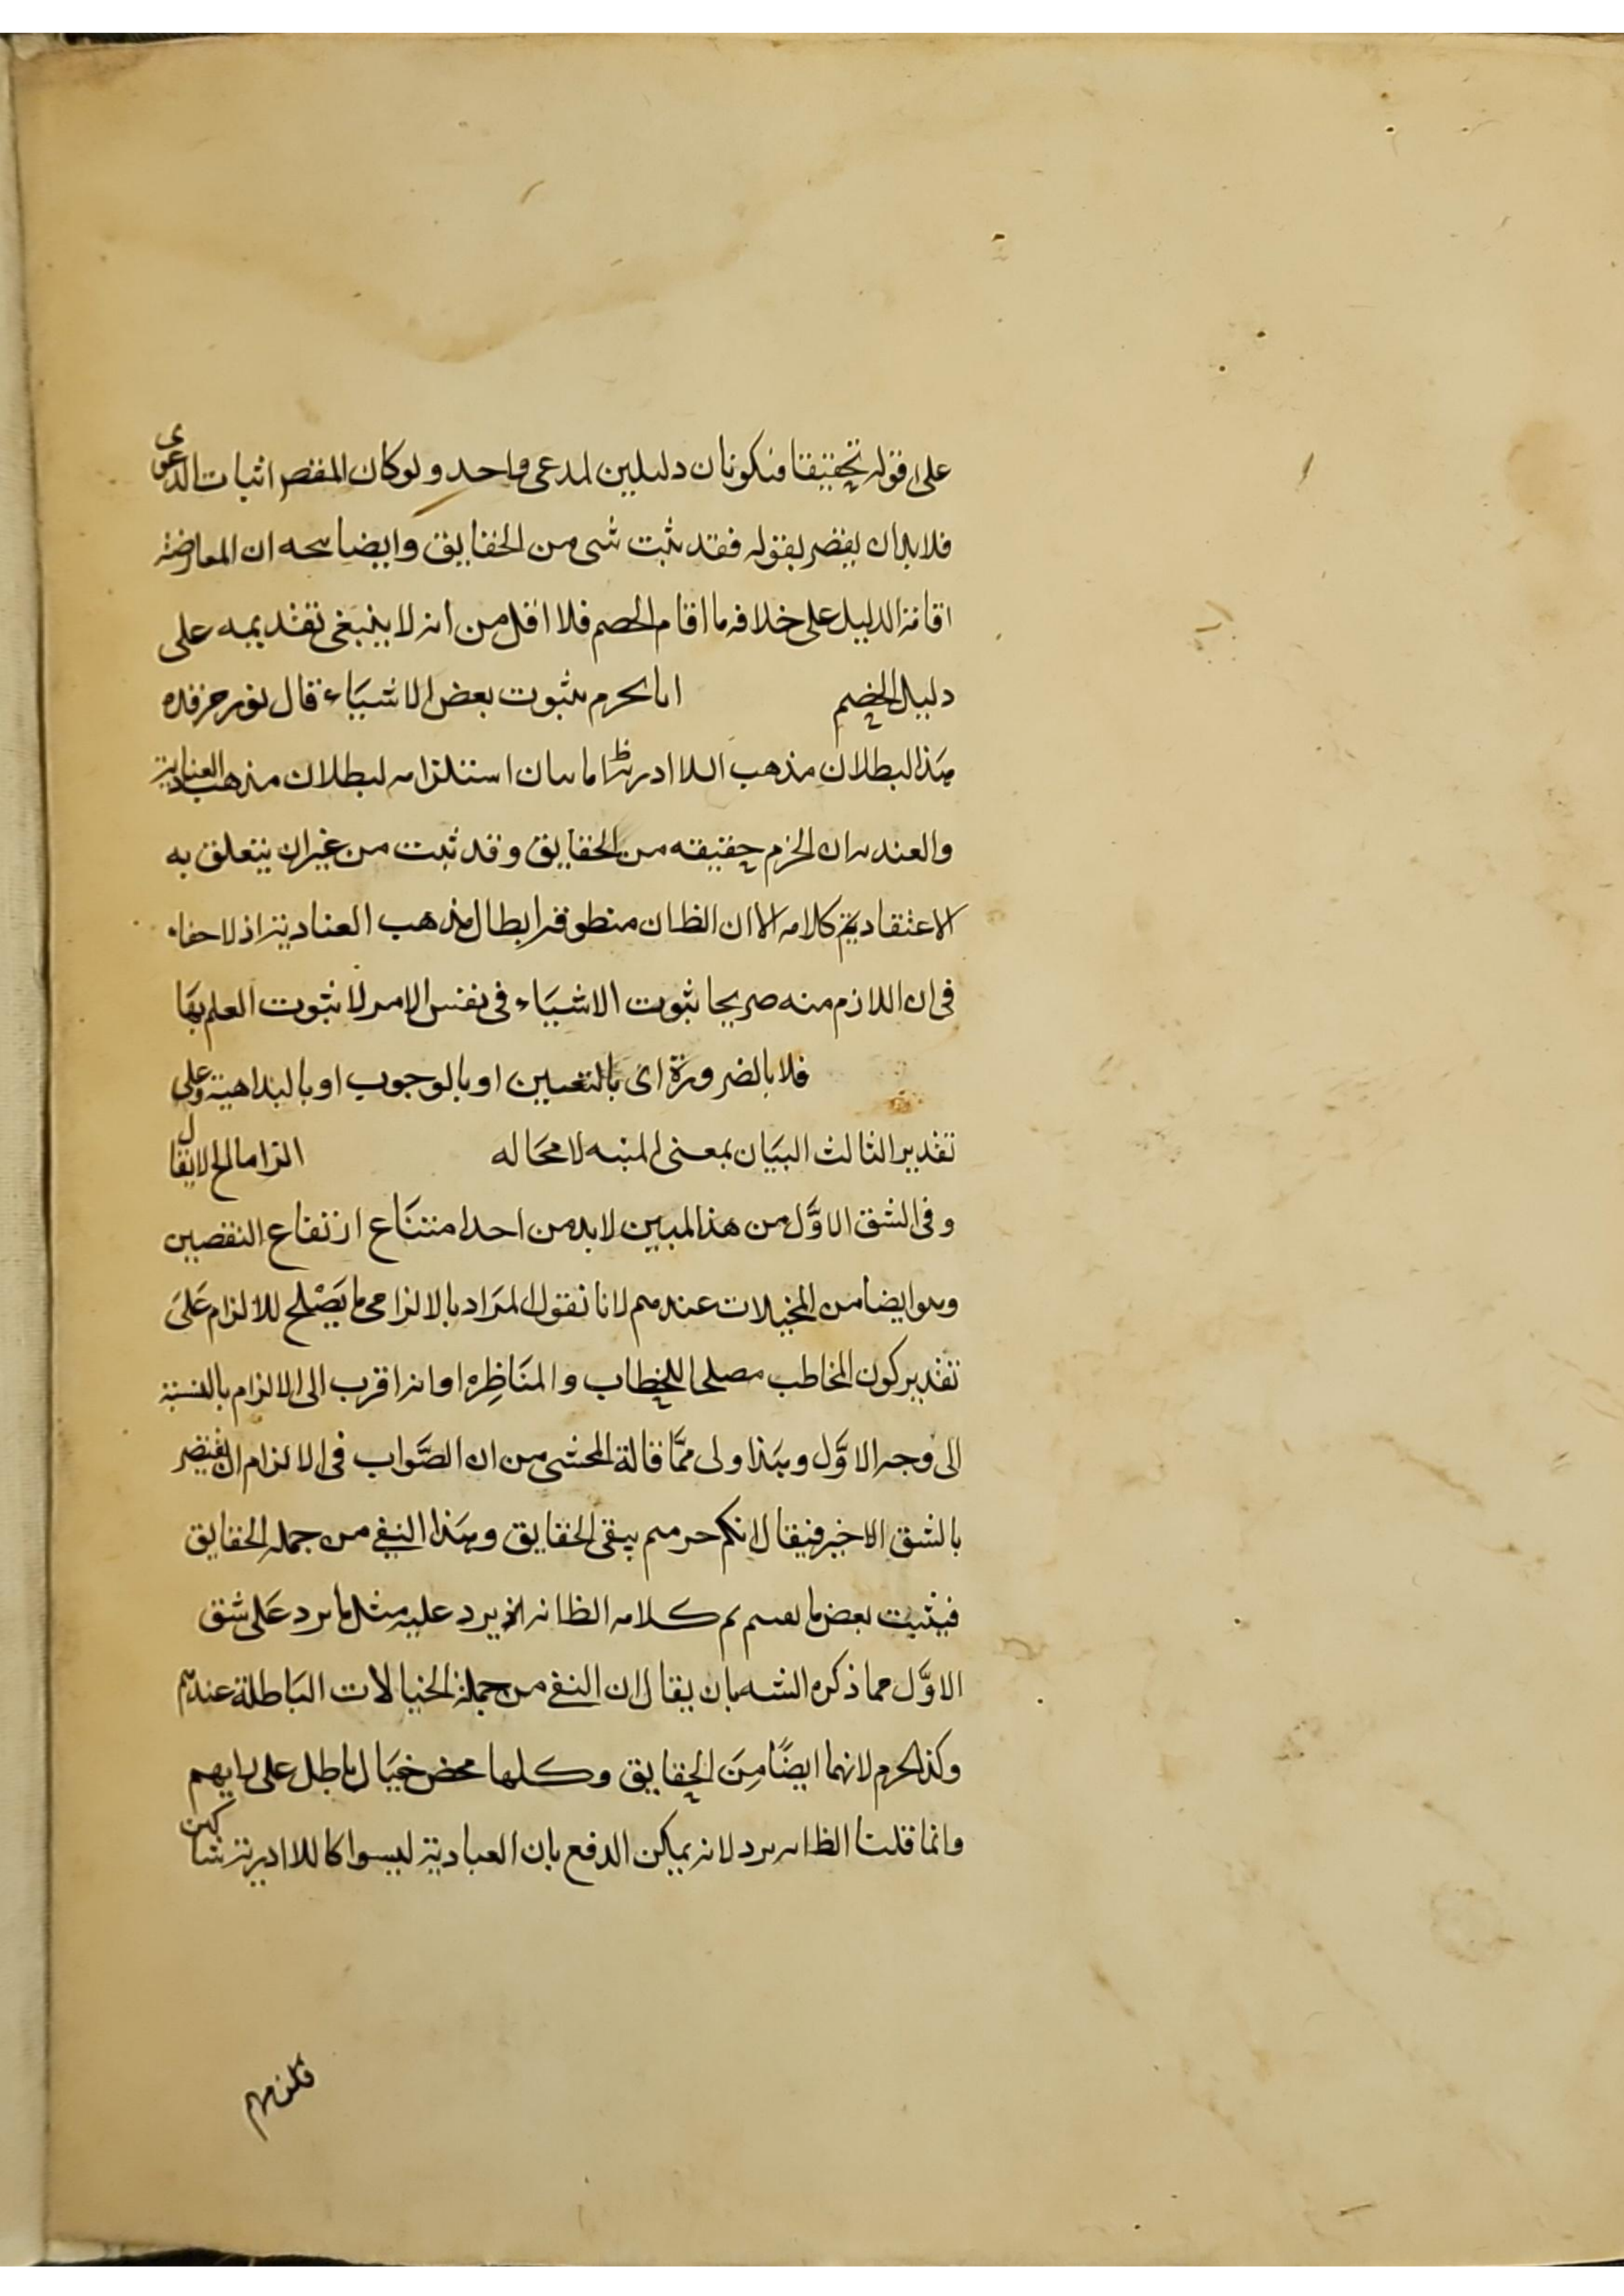 على قوله تحقيقا فيكونان دليلين لمدعى واحد ولو كان المقصر اثبات الدعوى
فلا بد ان يفصر بقوله فقد ثبت شى من الحقايق وايضا يتجه ان المعارضة
اقامة الدليل على خلاف ما اقام الخصم فلا اقل من انه لا ينبغى تقديمه على
دليل الخصم انا نجزم بثبوت بعض الاشياء قال
هذا لبطلان مذهب اللا ادرية اما بيان استلزامه لبطلان مذهب العنادية
والعنديه ان الجزم حقيقه من الحقايق وقد ثبت من غير ان يتعلق به
الاعتقاد كلامه الا ان الظ ان منطوقه ابطال مذهب العنادية اذ لا خفاء
فى ان اللازم منه صريحا ثبوت الاشياء فى نفس الامر لا ثبوت العلم بها
فلا بالضرورة اى بالتعيين او بالوجوب او بالبداهية وعلى
تقدير الثالث البيان بمعنى المنبه لا محاله الزاما الخ لا يقال
وفى الشق الاول من هذا المبين لا بد من احد امتناع ارتفاع النقصين
وهو ايضا من المخيلات عندهم لانا نقول المراد بالالزامى ما يصلح للالزام على
تقدير كون المخاطب مصلحا للخطاب والمناظره او انه اقرب الى الالزام بالنسبة
الى وجه الاول وهذا اولى مما قالة المحشى من ان الصواب فى الالزام ان يقتصر
بالشق الاخير فيقال انكم جزمتم بنفى الحقايق وهذا النفى من جمله الحقايق
فيثبت بعض ما نفيتم تم كلامه الظ انه يرد عليه مثل ما يرد على شق
الاول مما ذكره الشه بان يقال ان النفى من جملة الخيالات الباطلة عندهم
وكذا الجزم لانهما ايضا من الحقايق وكلها محض خيال باطل على رايهم
وانما قلنا الظ انه يرد لانه يمكن الدفع بان العبادية ليسوا كاللا ادرية شاكين